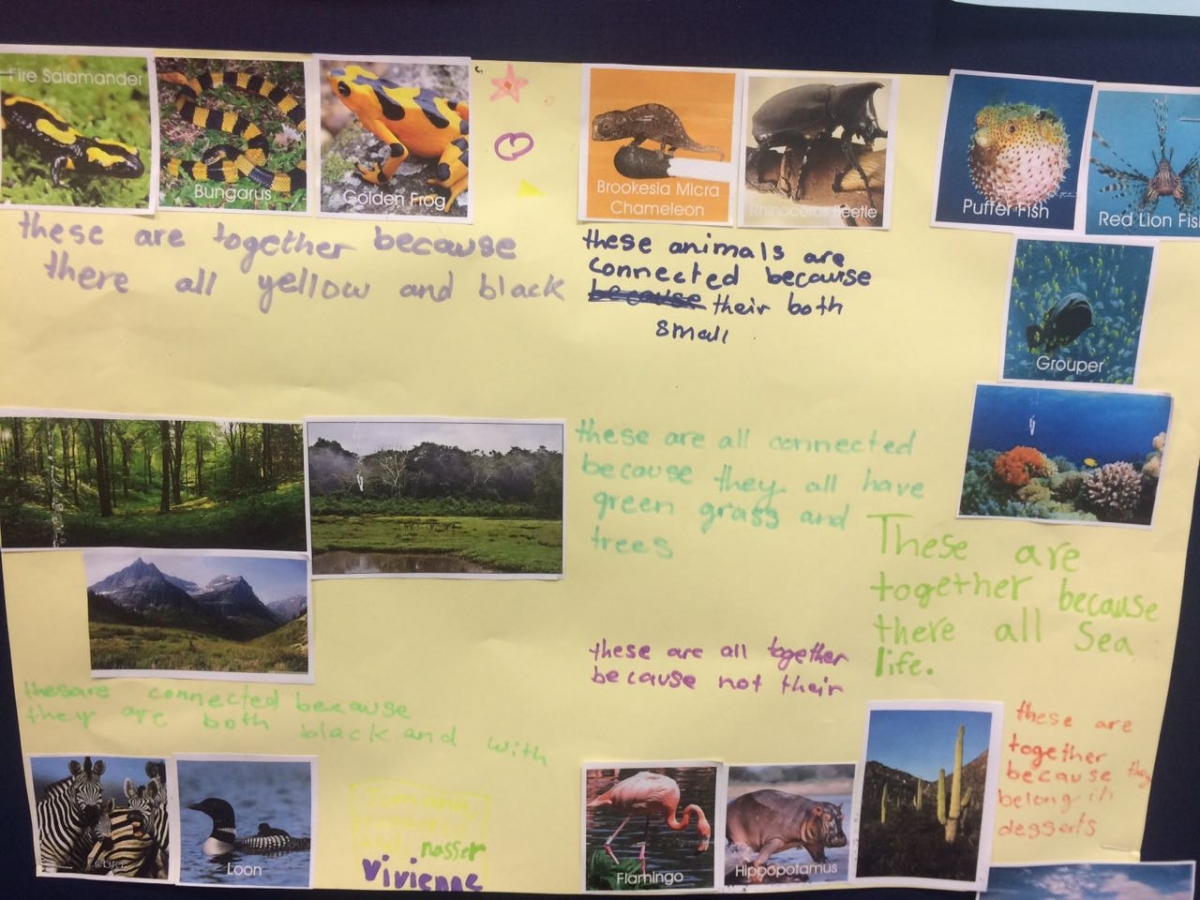 Fire Salamander
Bungarus
Golden Frog
these are together because
there all yellow and black
Brookesia Micra
Chameleon
Rhinoceros Beetle
these animals are
connected becaurse
because their both
small
Puffer Fish
Red Lion Fis
Grouper
these are all connected
because they all have
green grass and
trees
These are
together because
there all Sea
life.
thesare connected because
they are both black and with
Zebra
Loon
nasser
Vivienne
these are all together
because not their
Flamingo
Hippopotamus
these are
together
because they
belong in
desserts